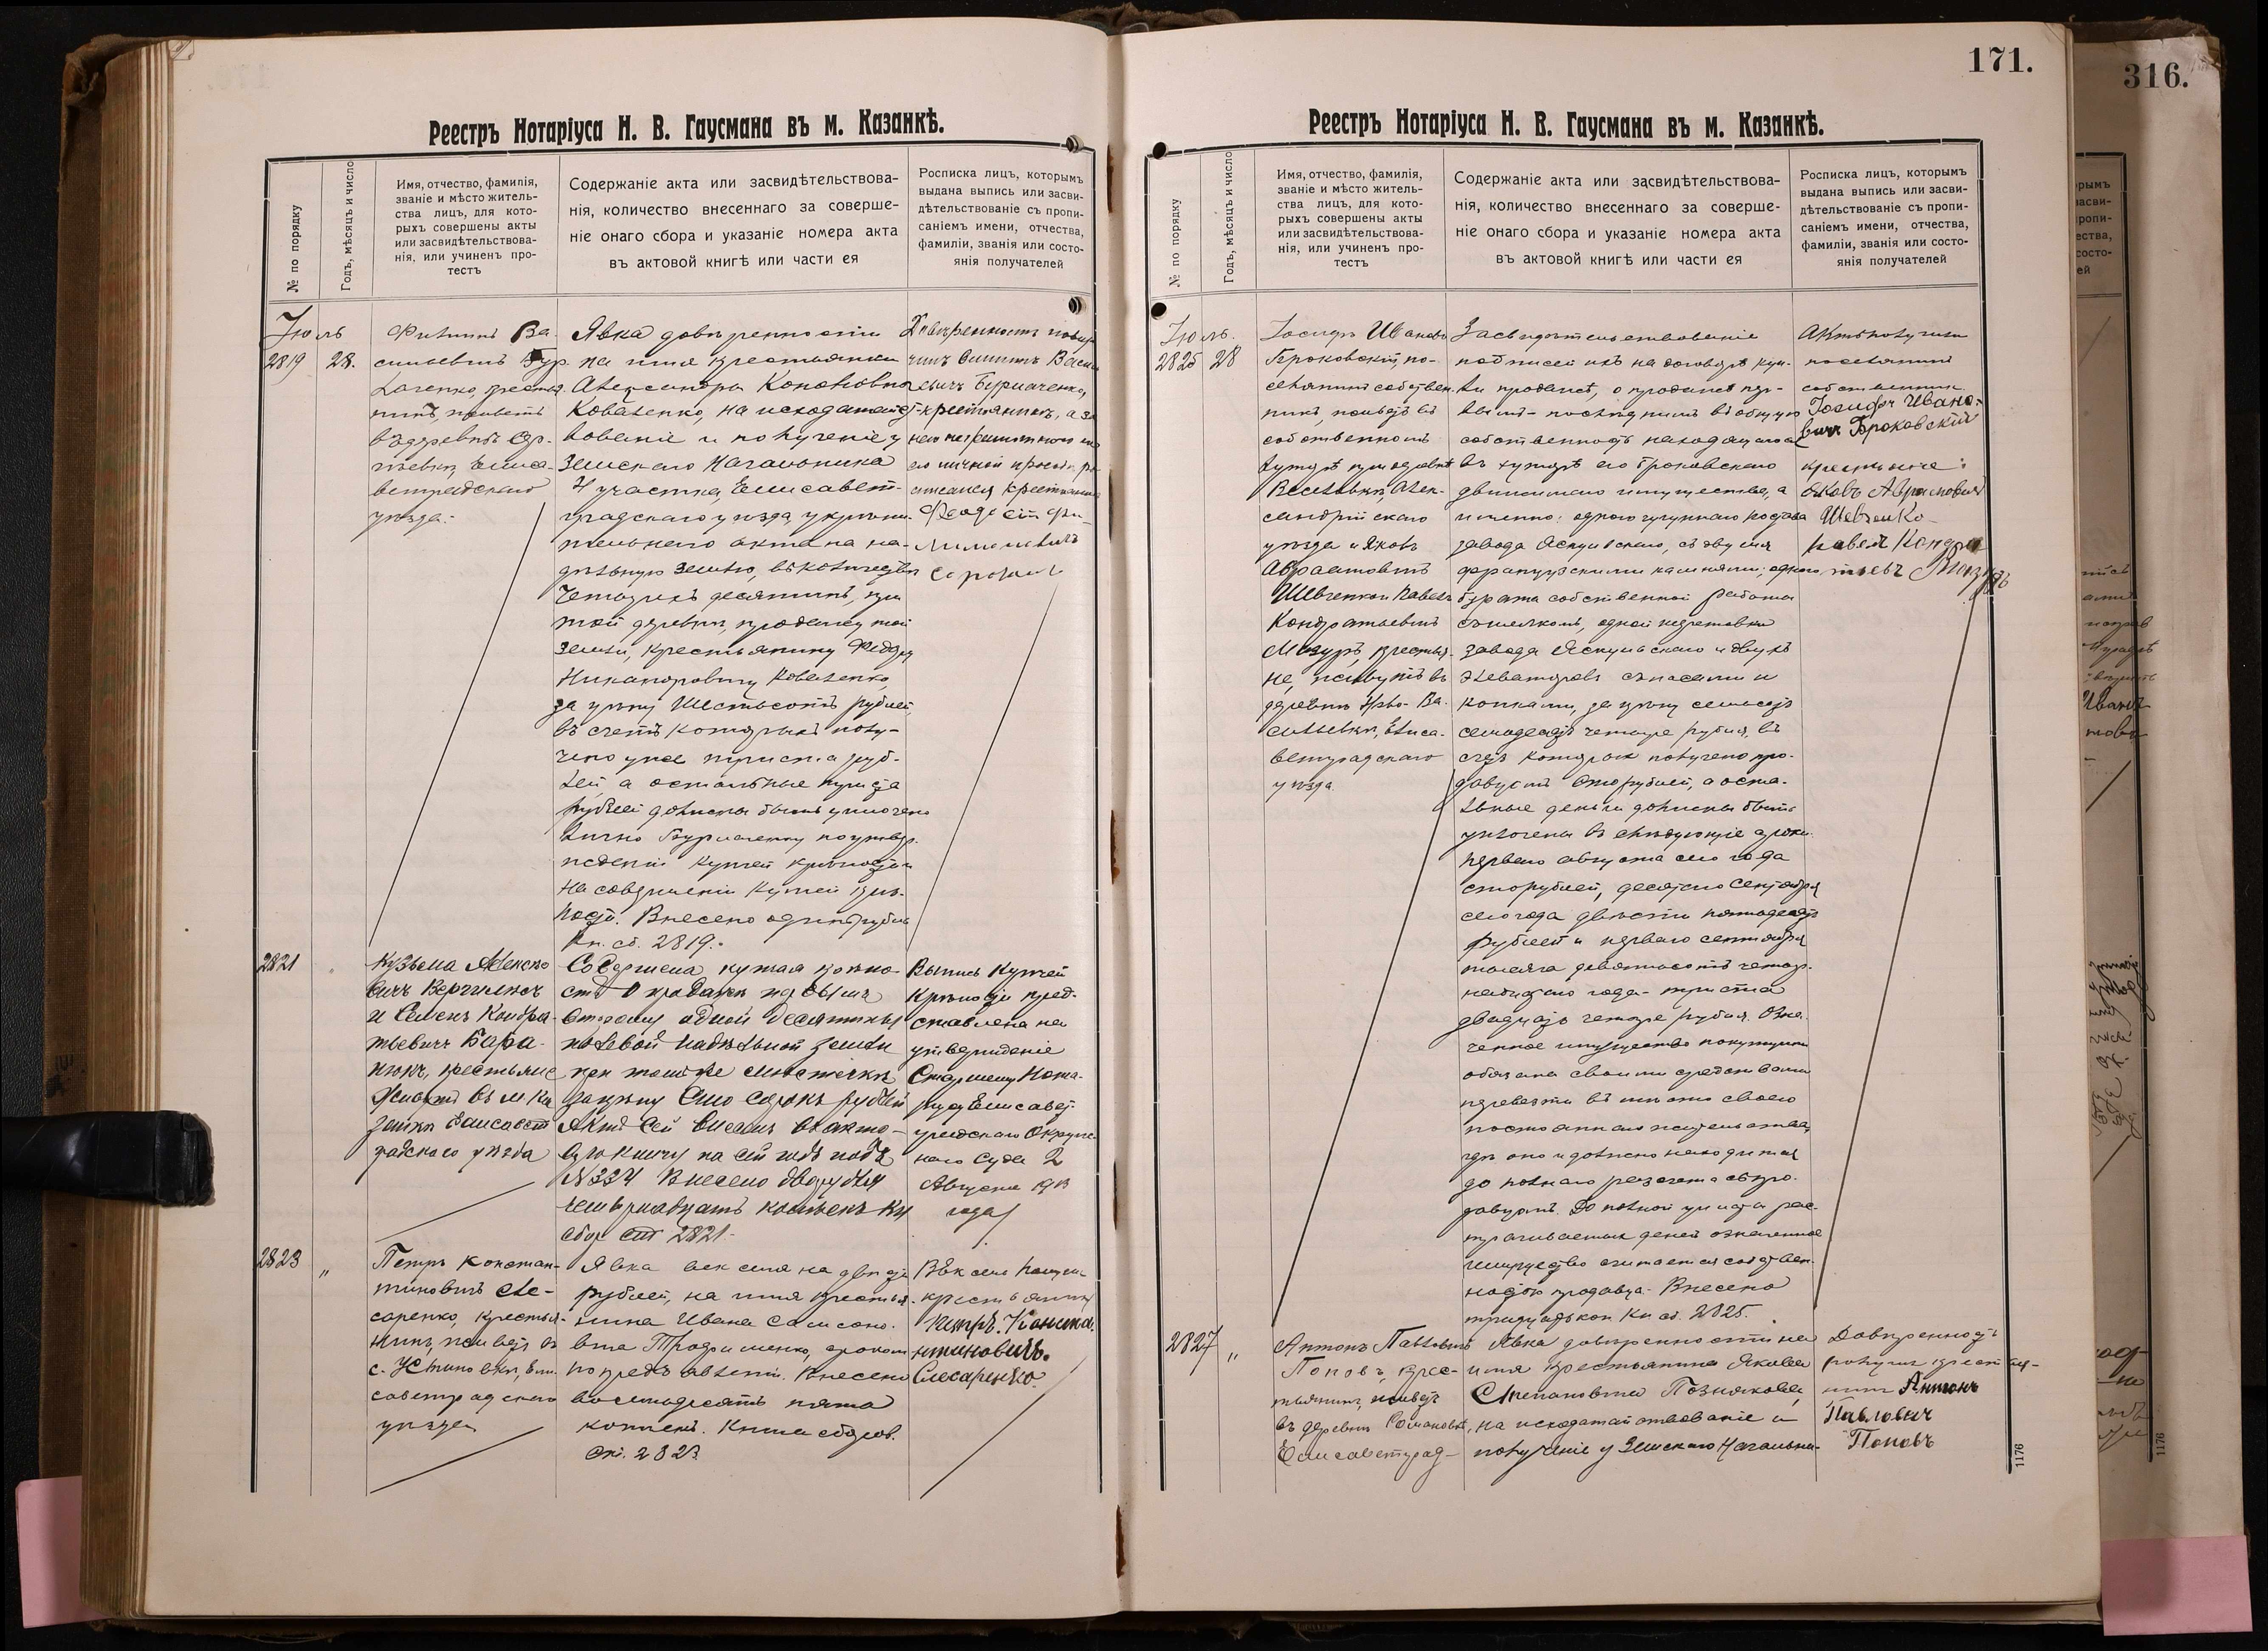 Реестръ Нотаріуса Н. В. Гаусмана въ м. Казанкѣ.
№ по порядку
Годъ, мѣсяцъ и число
Имя, отчество, фамилія,
званіе и мѣсто житель-
ства лицъ, для кото-
рыхъ совершены акты
или засвидѣтельствова-
нія, или учиненъ про-
тестъ
Содержаніе акта или засвидѣтельствова-
нія, количество внесеннаго за соверше-
ніе онаго сбора и указаніе номера акта
въ актовой книгѣ или части ея
Росписка лицъ, которымъ
выдана выпись или засви-
дѣтельствованіе съ пропи-
саніемъ имени, отчества,
фамиліи, званія или состо-
янія получателей
Іюль
2819
28.
Филиппъ Ва-
сильевичъ Бур-
лаченко, крестья-
нинъ, живетъ
въ деревнѣ
Елиса-
ветградскаго
уѣзда.
Явка довѣренности
на имя крестьянки
Александры Кононовны
Коваленко, на исходатайст-
вованіе и полученіе у
Земскаго Начальника
4 участка, Елисавет-
градскаго уѣзда, укрѣпи-
тельнаго акта на на-
дѣльную землю, въ количествѣ
четырехъ десятинъ, при
той деревнѣ, продажу той
земли, крестьянину Федору
Никаноровичу Коваленко,
за цѣну шестьсотъ рублей,
въ счетъ которыхъ полу-
чено уже триста руб-
лей, а остальные триста
рублей должны быть уплочены
лично Бурлаченку по утвер-
жденіи купчей крѣпости
на совершеніи купчей крѣ-
пости. Внесено одинъ рубль
Кн. сб. 2819.
Довѣренность полу-
чилъ Филиппъ Василь-
евичъ Бурлаченко,
крестьянинъ, а за
него неграмотнаго по
его личной просьбѣ ро-
списался крестьянинъ
Феодосій Фи-
лимоновичъ
2821
"
Кузьма Алексѣе-
вичъ
и Семенъ Кондра-
тьевичъ Бара-
нюкъ, крестьяне
живутъ въ м. Ка-
занкѣ Елисавет-
градскаго уѣзда
Совершена купчая крѣпо-
сть о продажѣ первымъ
второму одной десятины
полевой надѣльной земли
при томъ же мѣстечкѣ
за цѣну сто сорокъ рублей
Актъ сей внесенъ въ акто-
вую книгу на сей годъ подъ
№334 Внесено два рубля
четырнадцать копѣекъ Кн
сбор ст 2821.
Выпись купчей
крѣпости пред-
ставлена на
утвержденіе
Старшему Нота-
ріусу Елисавет-
градскаго Окруж-
наго Суда 2
Августа 1913
года
2823
"
Петръ Констан-
тиновичъ Сле-
саренко, крестья-
нинъ, живетъ въ
с. Устиновкѣ, Ели-
саветградскаго
уѣзда
Явка векселя на двѣсти
рублей, на имя крестья-
нина Ивана Самсоно-
вича Трофименко, срокомъ
по предъявленіи. Внесено
восемьдесятъ пять
копѣекъ. Книга сборов.
ст. 2823.
Вексель получилъ
крестьянинъ
Петръ. Конста-
нтиновичъ.
Слесаренко
171.
Реестръ Нотаріуса Н. В. Гаусмана въ м. Казанкѣ.
№ по порядку
Годъ, мѣсяцъ и число
Имя, отчество, фамилія,
званіе и мѣсто житель-
ства лицъ, для кото-
рыхъ совершены акты
или засвидѣтельствова-
нія, или учиненъ про-
тестъ
Содержаніе акта или засвидѣтельствова-
нія, количество внесеннаго за соверше-
ніе онаго сбора и указаніе номера акта
въ актовой книгѣ или части ея
Росписка лицъ, которымъ
выдана выпись или засви-
дѣтельствованіе съ пропи-
саніемъ имени, отчества,
фамиліи, званія или состо-
янія получателей
Іюль.
2825
28
Іосифъ Ивановъ
Броковскій, по-
селянинъ собствен-
никъ, живетъ въ
собственномъ
хуторѣ при деревнѣ
Веселовкѣ, Алек-
сандрійскаго
уѣзда и Яковъ
Авраамовичъ
Шевченко и Павелъ
Кондратьевичъ
Мазуръ, крестья-
не, живутъ въ
деревнѣ Ново-Ва-
сильевкѣ, Елиса-
ветградскаго
уѣзда.
Засвидѣтельствованіе
подписей ихъ на договорѣ куп-
ли продажѣ, о продажѣ пер-
вымъ - послѣднимъ въ общую
собственность находящагося
въ хуторѣ его Броковскаго
движимаго имущества, а
именно: одного чугуннаго постава
завода Яскульскаго, съ двумя
французскими камнями; одного
бурата собственной работы
съ шелкомъ, одной
завода Яскульскаго и двухъ
элеваторовъ съ пасами и
копками, за цѣну семьсотъ
семьдесятъ четыре рубля, въ
счетъ которыхъ получено про-
давцомъ сто рублей, а оста-
льные деньги должны быть
уплочены въ слѣдующіе сроки:
перваго августа сего года
сто рублей, десятаго сентября
сего года двѣсти пятьдесятъ
рублей и перваго сентября
тысяча девятьсотъ четыр-
надцатаго года - триста
двадцать четыре рубля. Озна-
ченное имущество покупщики
обязаны своими средствами
перевезти въ мѣсто своего
постояннаго жительства,
гдѣ оно и должно находиться
до полнаго разсчета съ про-
давцомъ. До полной уплаты рас-
трачиваемыхъ денегъ означенное
имущество считается собствен-
ностью продавца. Внесено
тридцать коп Кн сб. 2825.
Актъ получили
поселянинъ
собственникъ
Іосифъ Ивано-
вичъ Броковскій
крестьяне:
Яковъ Аврамовичъ
Шевченко
Павелъ Кондра
тьевъ Мазуръ
2827
"
Антонъ Павловичъ
Поповъ, крес-
тьянинъ, живетъ
въ деревнѣ Романовкѣ,
Елисаветград-
Явка довѣренности на
имя крестьянина Якова
Степановича Познякова,
на исходатайствованіе и
полученіе у Земскаго Начальни-
Довѣренность
получилъ крестья-
нинъ Антонъ
Павловичъ
Поповъ
1176
316.
орымъ
засви-
пропи-
ества,
состо-
ей
1176